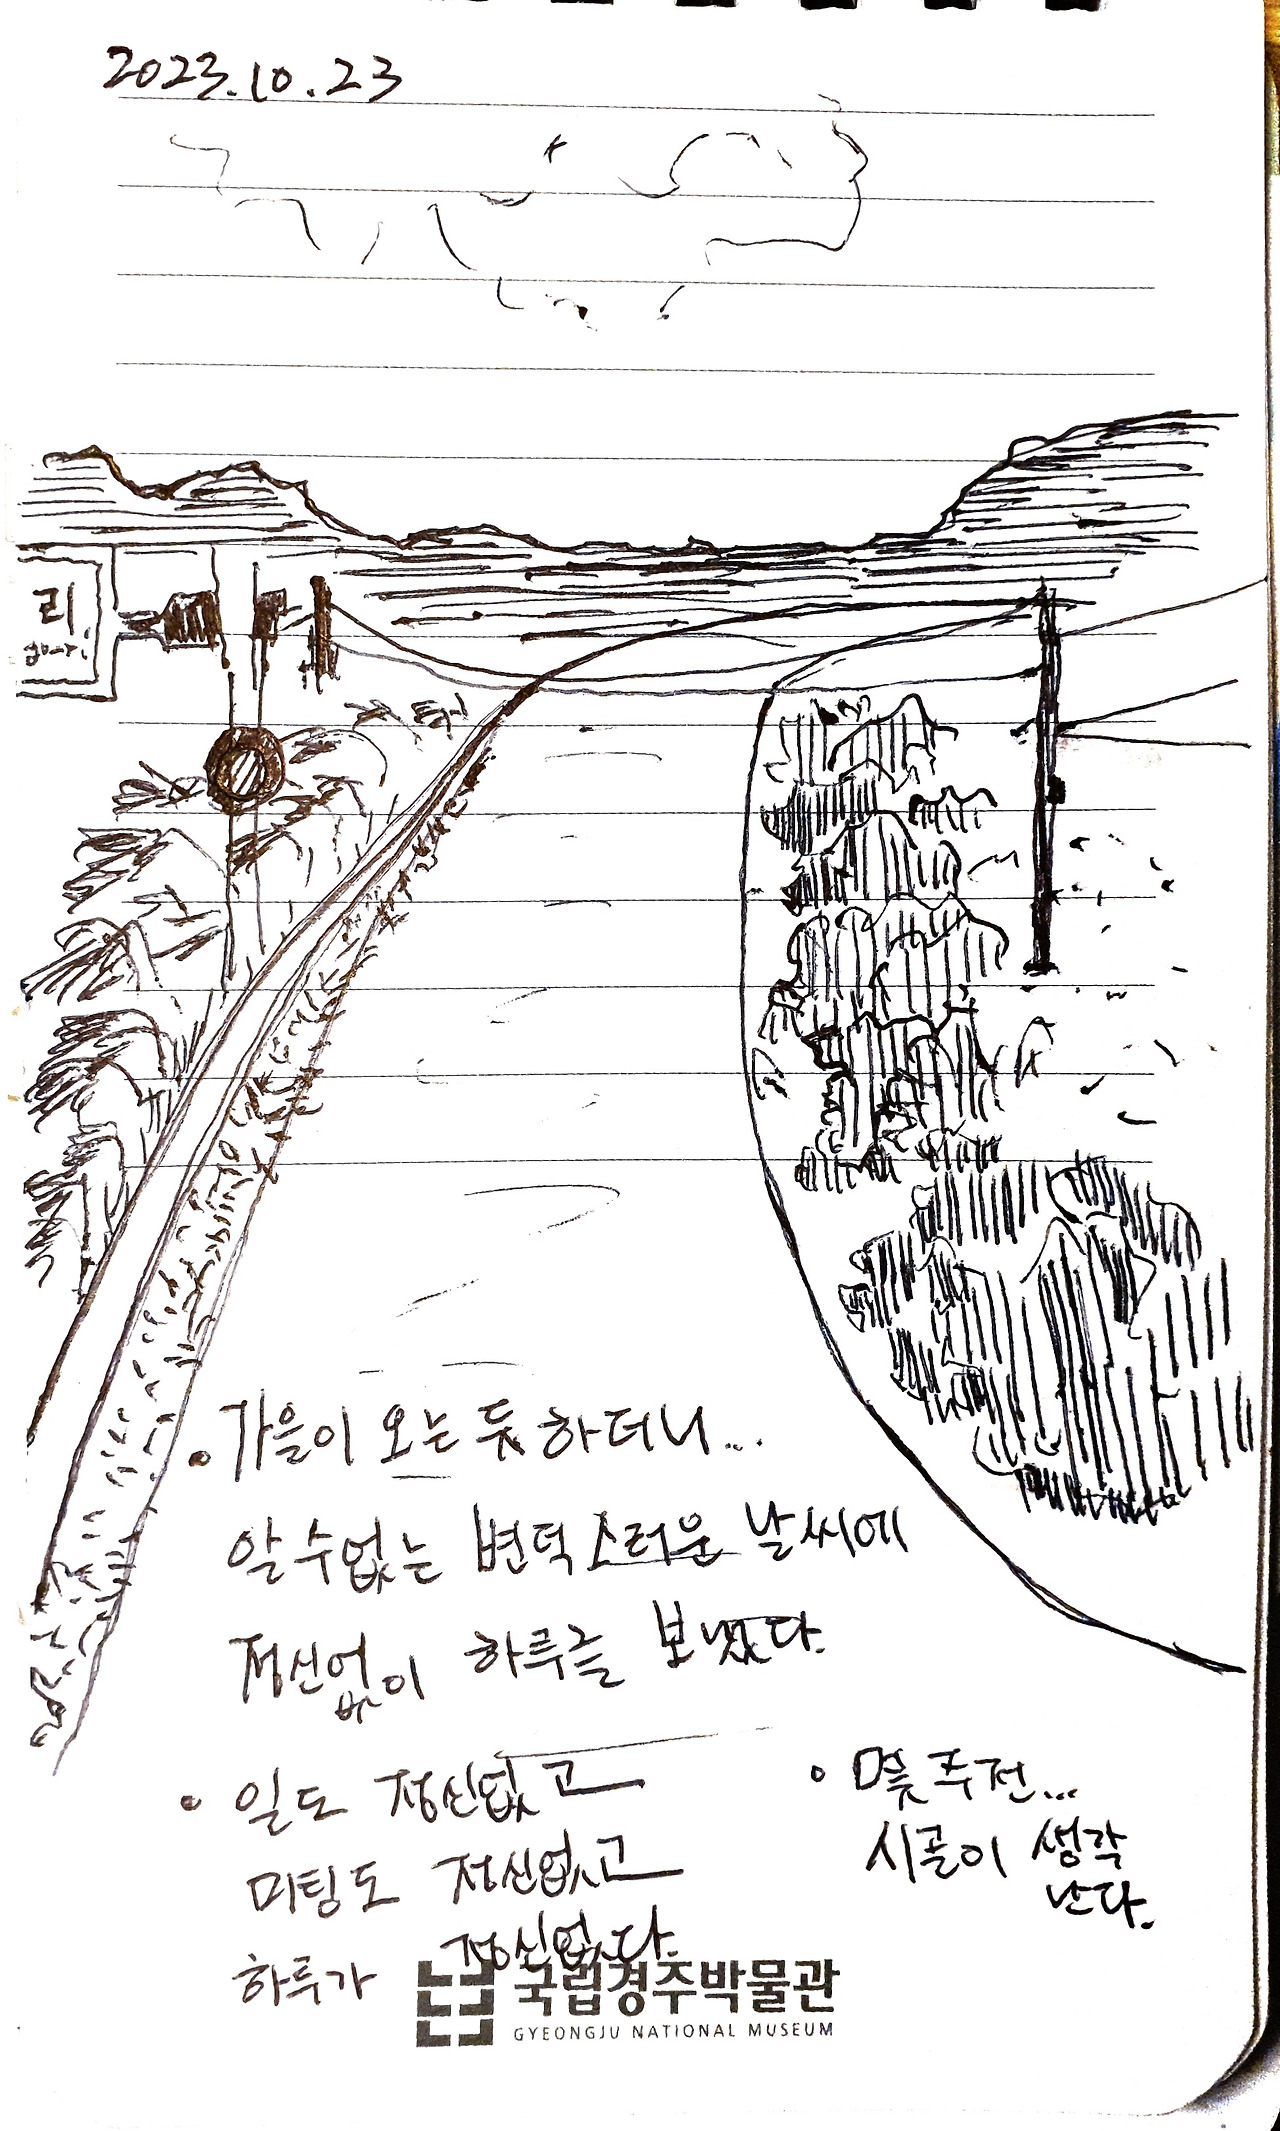 2023.10.23
리
• 가을이 오는 듯 하더니...
알 수 없는 변덕스러운 날씨에
정신없이 하루를 보냈다.
• 일도 정신없고
미팅도 정신없고
하루가 정신없다.
• 몇 주 전...
시골이 생각
난다.
국립경주박물관
GYEONGJU NATIONAL MUSEUM